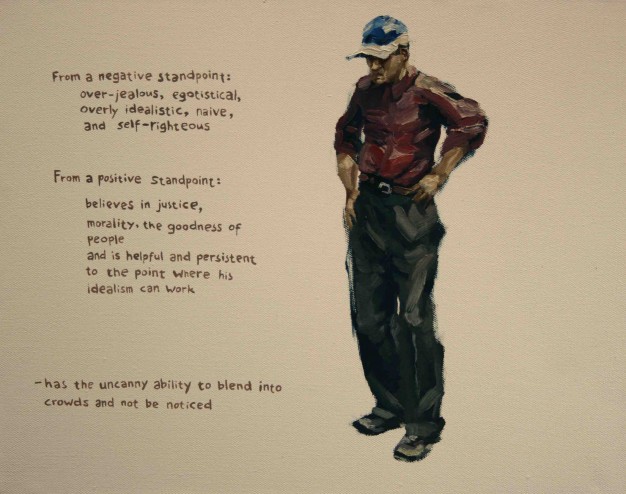 From a negative standpoint:
over-jealous, egotistical,
overly idealistic, naive,
and self-righteous
From a positive standpoint:
believes in justice,
morality. the goodness of
people
and is helpful and persistent
to the point where his
idealism can work
-has the uncanny ability to blend into
crowds and not be noticed